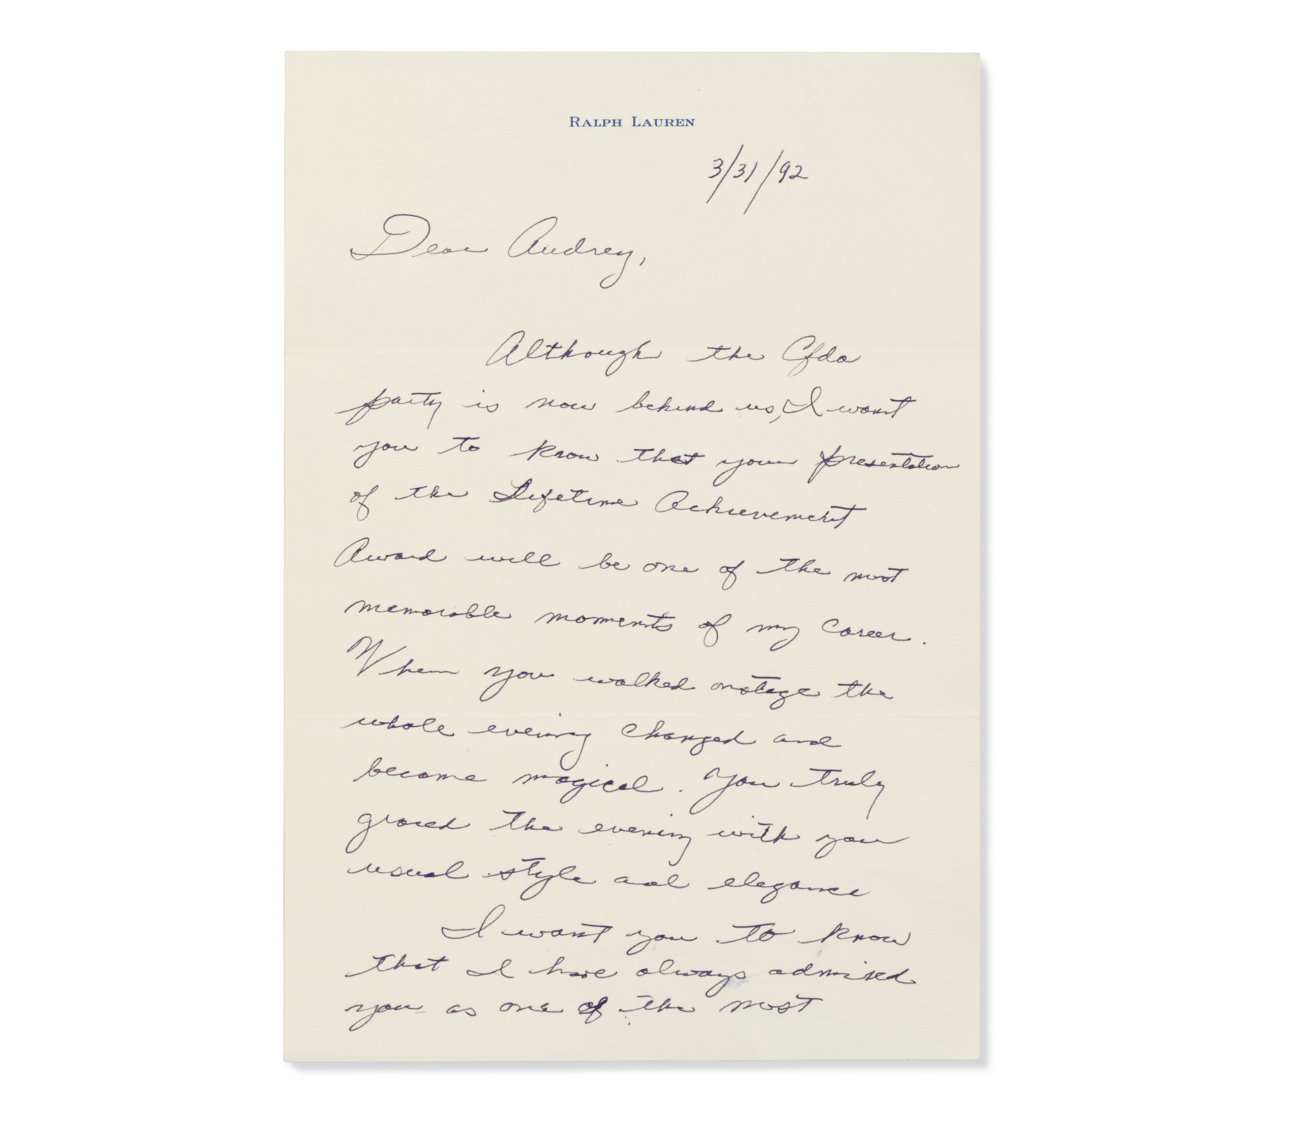 RALPH LAUREN
3/31/92
Dear Audrey,
Although the Cfda
party is now behind us, I want
you to know that your presentation
of the Lifetime Achievement
Award will be one of the most
memorable moments of my career.
When you walked onstage the
whole evening changed and
became magical. You truly
graced the evening with your
usual style and elegance
I want you to know
that I have always admired
you as one of the most